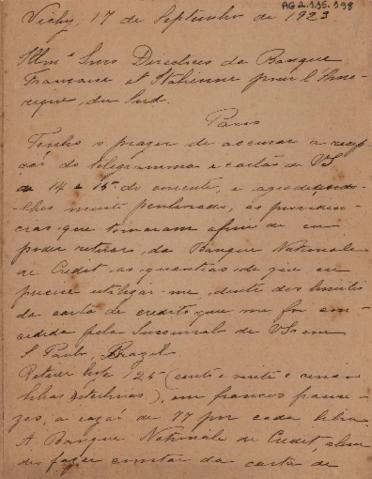 AG 2.1.16.198
Vichy, 17 de Septembro de 1923
Illmos Snrs Directores da Banque
Française et Italienne pour l'Amé-
rique du Sud.
Paris
Tenho o prazer de accusar a recep-
ção do telegramma e cartão de VS
de 14 e 15 do corrente, e agradecendo-
lhes muito penhorado, as providen-
cias que tomaram afim de eu
poder retirar, da Banque Nationale
de Credit, as quantias de que eu
precise utilizar-me, dentro dos limites
da carta de credito que me foi con-
cedida pela Succursale de VS em
S. Paulo, Brazil.
Retirei hoje 125 (cento e vinte e cinco
libras esterlinas), em francos france-
zes, a razão de 77 por cada libra.
A Banque Nationale de Credit, alem
de fazer constar da carta de